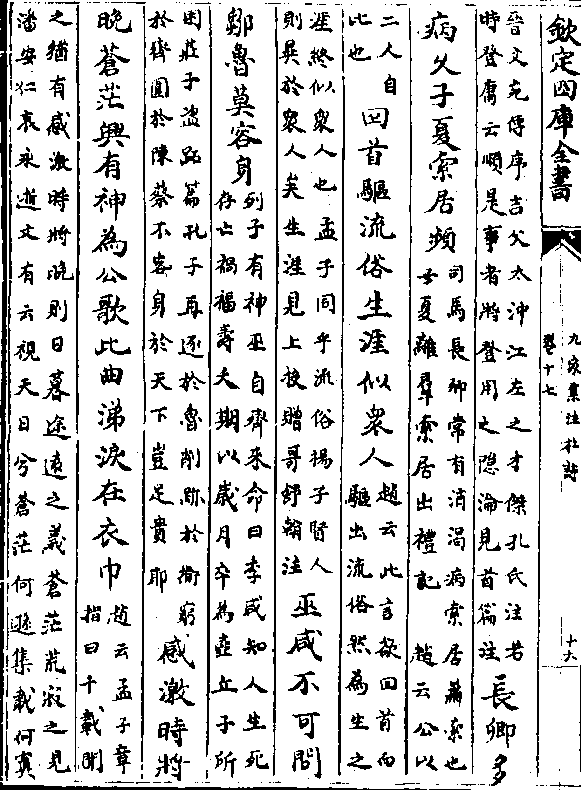 欽定四庫全書
九家集注杜詩
卷十七
十六
晉文克傳序吉父太沖江左之才傑孔氏注若
時登庸云順是事者將登用之隱淪見首篇注
長卿多
病久子夏索居頻
司馬長卿常有消渴病索居蕭索也
子夏離羣索居出禮記 趙云公以
二人自
比也
回首驅流俗生涯似衆人
趙云此言欲回首向
驅出流俗然為生之
涯終似衆人也 孟子同乎流俗揚子賢人
則異於衆人矣生涯見上投贈哥舒翰注
巫咸不可問
鄒魯莫容身
列子有神巫自齊來命曰季咸知人生死
存亡禍福壽夭期以歲月卒為壺丘子所
窮
困莊子盗跖篇孔子再逐於魯削跡於衛窮
於齊圍於陳蔡不容身於天下豈足貴耶
感激時將
晚蒼茫興有神為公歌此曲涕淚在衣巾
趙云孟子章
指曰千載聞
之猶有感激時將晚則日暮途遠之義蒼茫荒寂之見
潘安仁哀永逝文有云視天日兮蒼茫何遜集載何寘